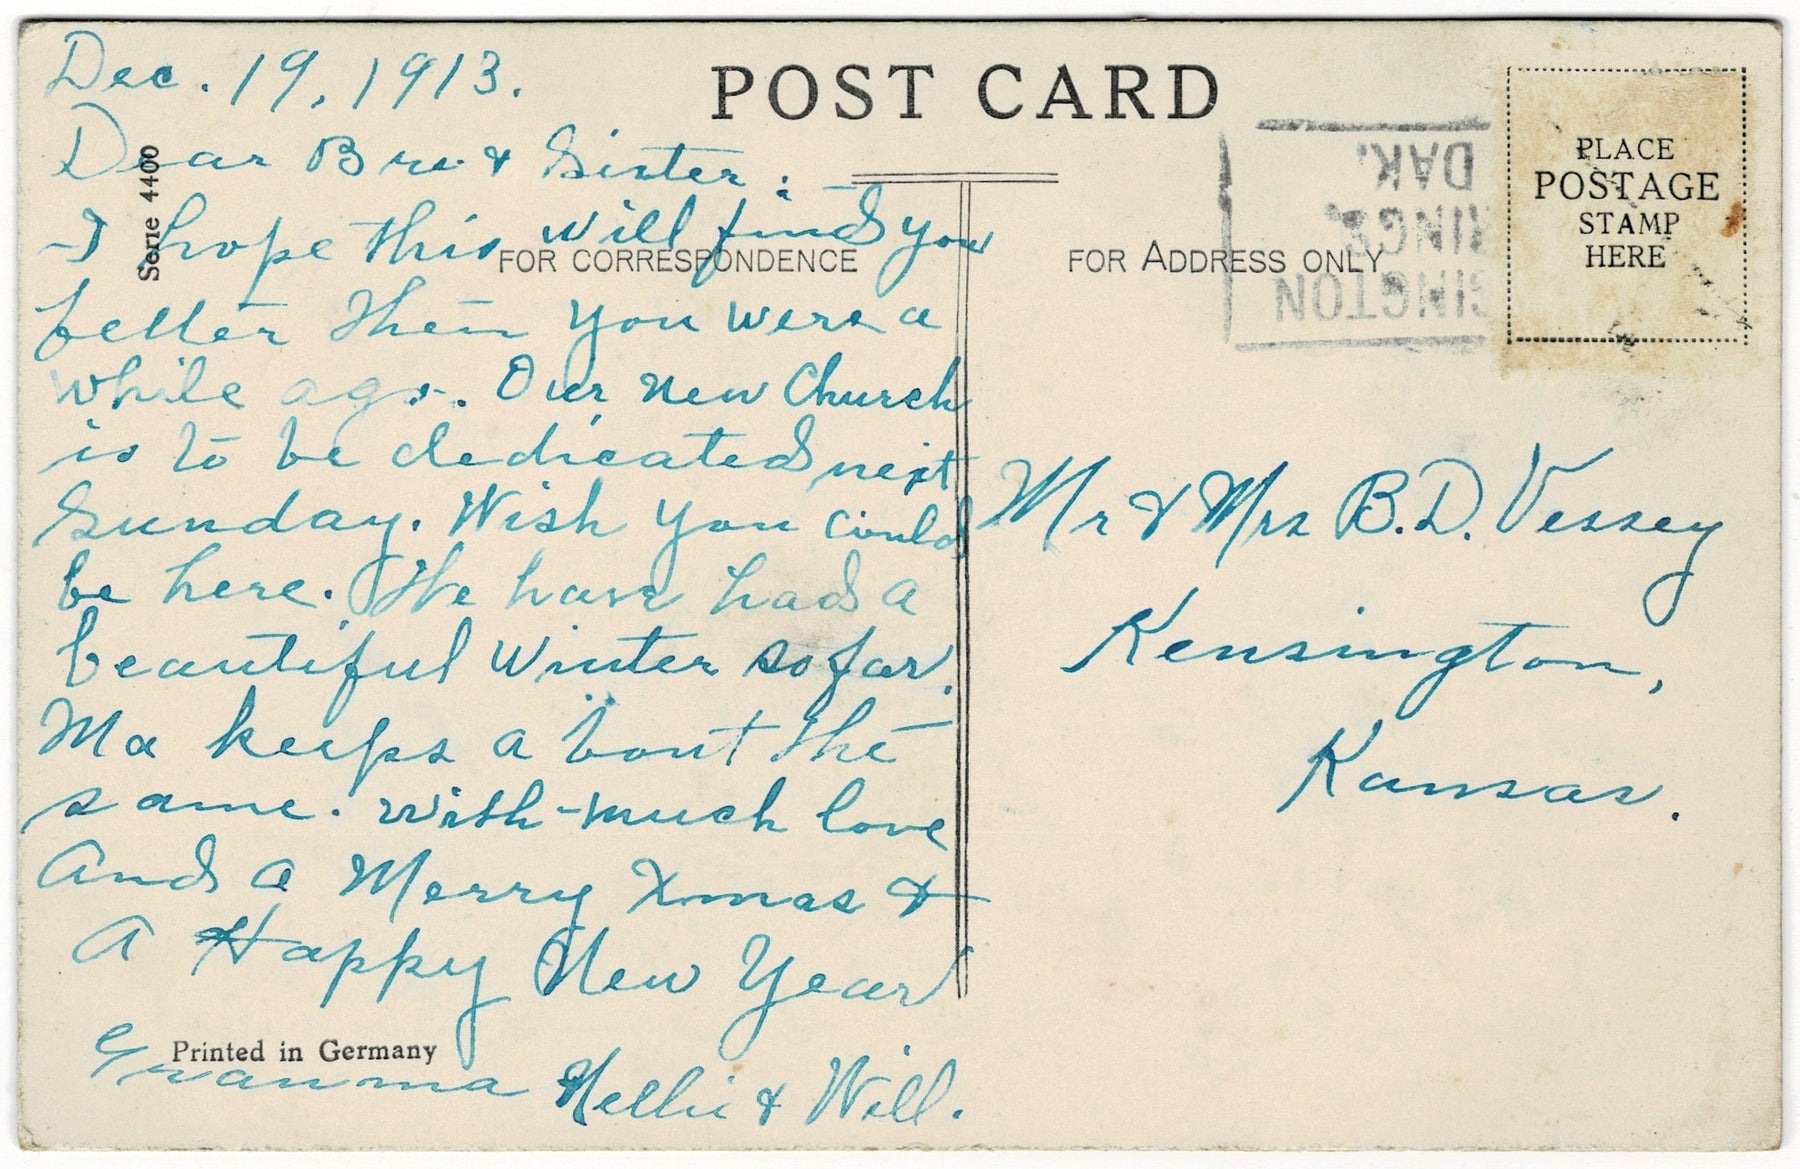 Dec. 19, 1913.
POST CARD
Dear Bro & Sister:
Serie 4400
I hope this will find you
FOR CORRESPONDENCE
better then you were a
while ago. Our new Church
is to be dedicated next
Sunday. Wish you could
be here. We have had a
beautiful winter so far.
Ma keeps a bout the
same. with much love
and a Merry Xmas &
A Happy New Year
Printed in Germany
Granma Nellie & Will.
FOR ADDRESS ONLY
PLACE
POSTAGE
STAMP
HERE
INGTON
INGS,
DAK.
Mr & Mrs B.D. Vessey
Kensington,
Kansas.